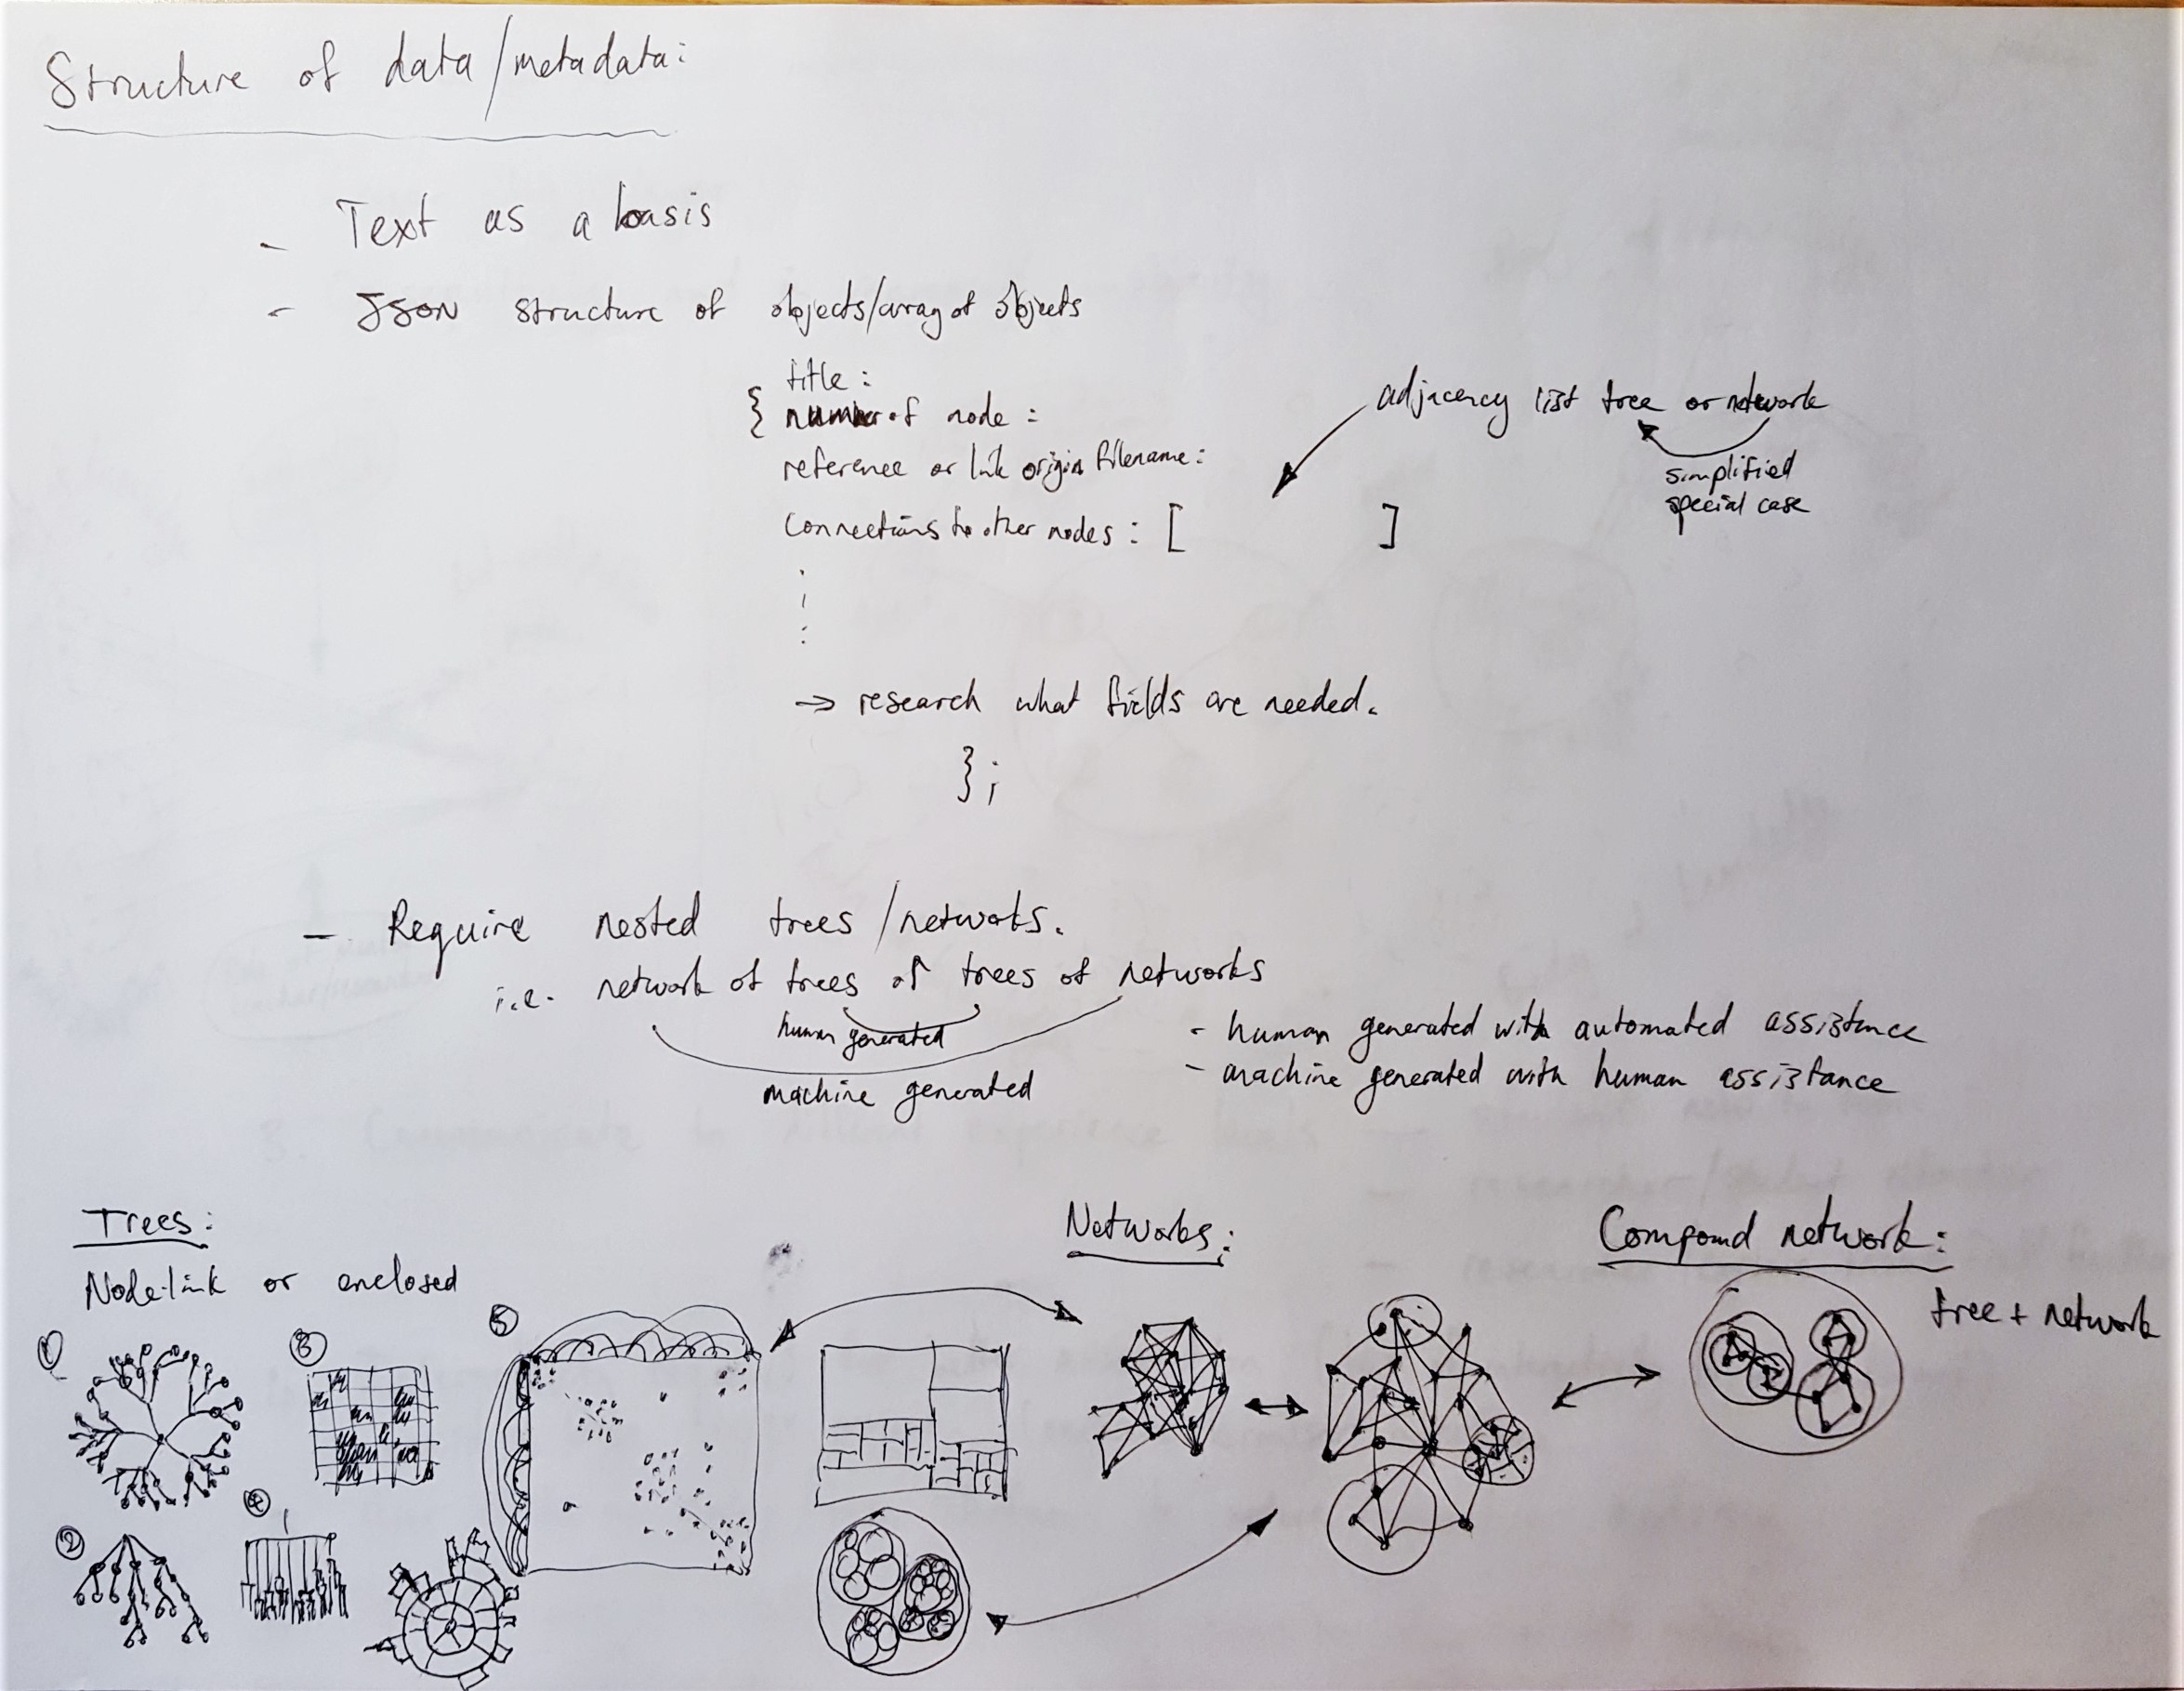 Structure of data/metadata:
- Text as a basis
- JSON structure of objects/array of objects
title :
{ number of node :
reference or link origin filename :
connections to other nodes : [ ]
adjacency list tree or network
simplified
special case
→ research what fields are needed.
};
- Require nested trees/networks.
i.e. network of trees of trees of networks
human generated
machine generated
- human generated with automated assistance
- machine generated with human assistance
Trees:
Node-link or enclosed
1
3
5
2
4
Networks:
Compound network:
tree + network